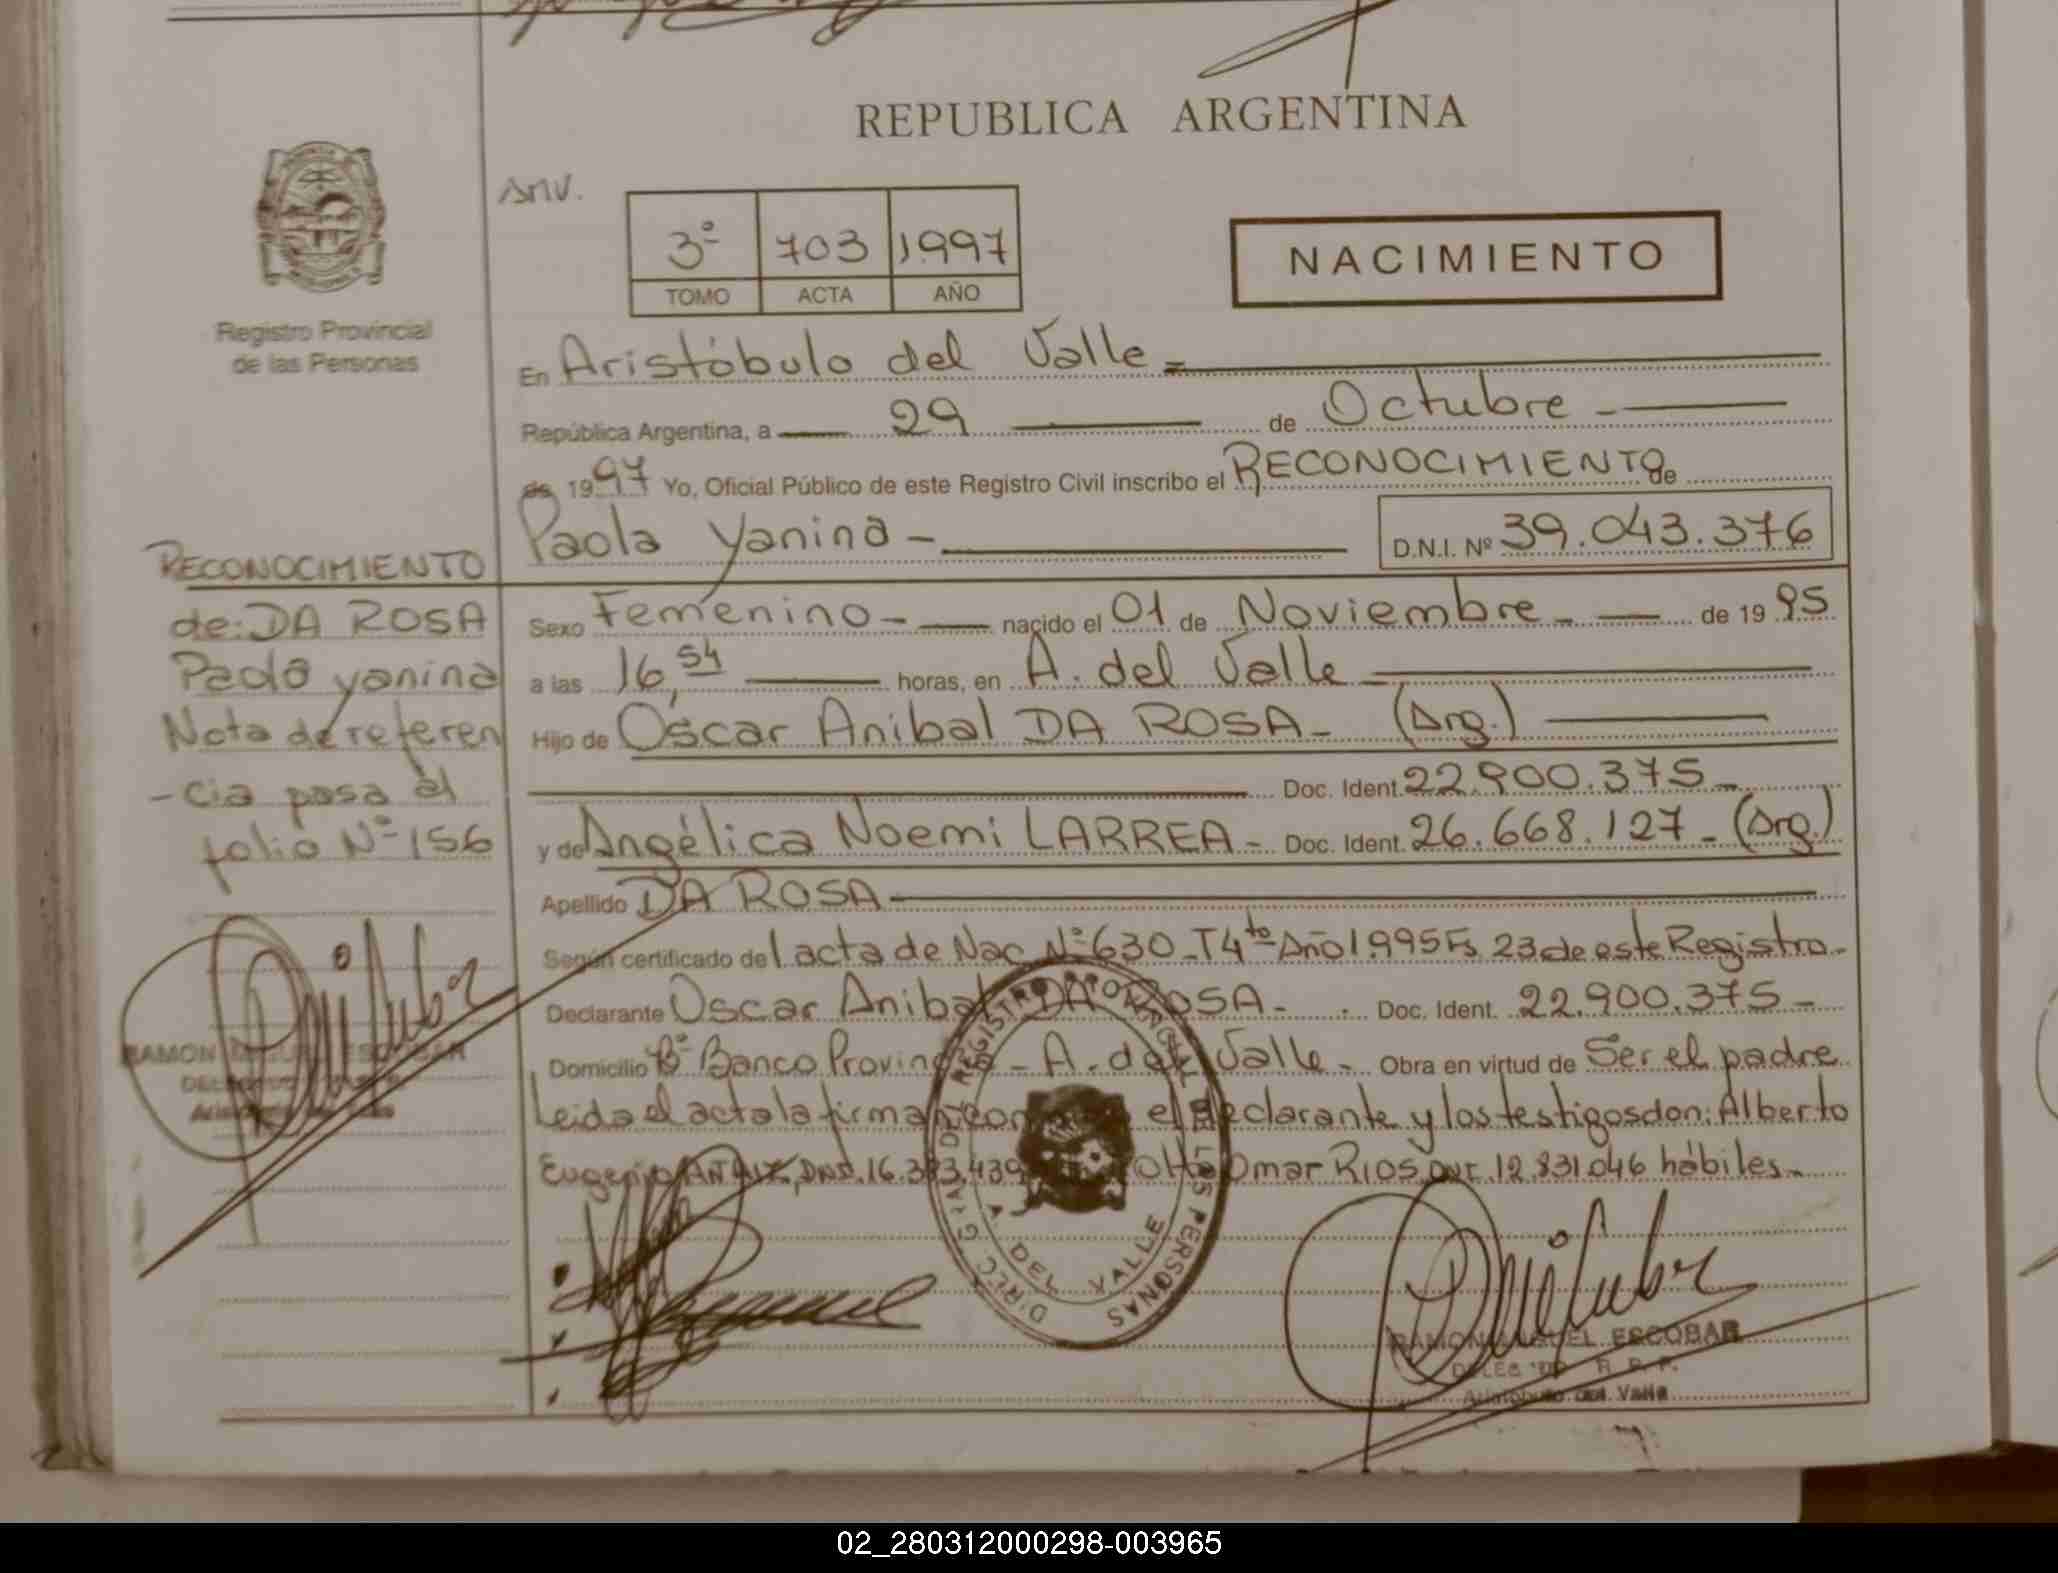 REPUBLICA ARGENTINA
3º 703 1997
TOMO ACTA AÑO
NACIMIENTO
Registro Provincial
de las Personas
En Aristóbulo del Valle
República Argentina, a 29 de Octubre
de 1997 Yo, Oficial Público de este Registro Civil inscribo el RECONOCIMIENTO de
Paola Yanina D.N.I. Nº 39.043.376
RECONOCIMIENTO
de: DA ROSA
Paola yanina
Nota de referen
- cia pasa al
folio Nº 156
Sexo Femenino nacido el 01 de Noviembre de 1995
a las 16,54 horas, en A. del Valle
Hijo de Oscar Anibal DA ROSA (Arg.)
Doc. Ident. 22.900.375
y de Angélica Noemi LARREA Doc. Ident. 26.668.127 (Arg.)
Apellido DA ROSA
Según certificado de l acta de Nac. Nº 630 T4to Año 1995 Fs 23 de este Registro
Declarante Oscar Anibal DA ROSA Doc. Ident. 22.900.375
Domicilio Bº Banco Provincia A. del Valle Obra en virtud de Ser el padre
Leida el acta la firman con el declarante y los testigos don: Alberto
Eugenio Omar RIOS 12.831.046 hábiles
DIREC. GRAL. DEL REGISTRO PROVINCIAL DE LAS PERSONAS
A. DEL VALLE
RAMON MIGUEL ESCOBAR
RAMON MIGUEL ESCOBAR
DELEGADO R. P. P.
Aristobulo del Valle
02_280312000298-003965